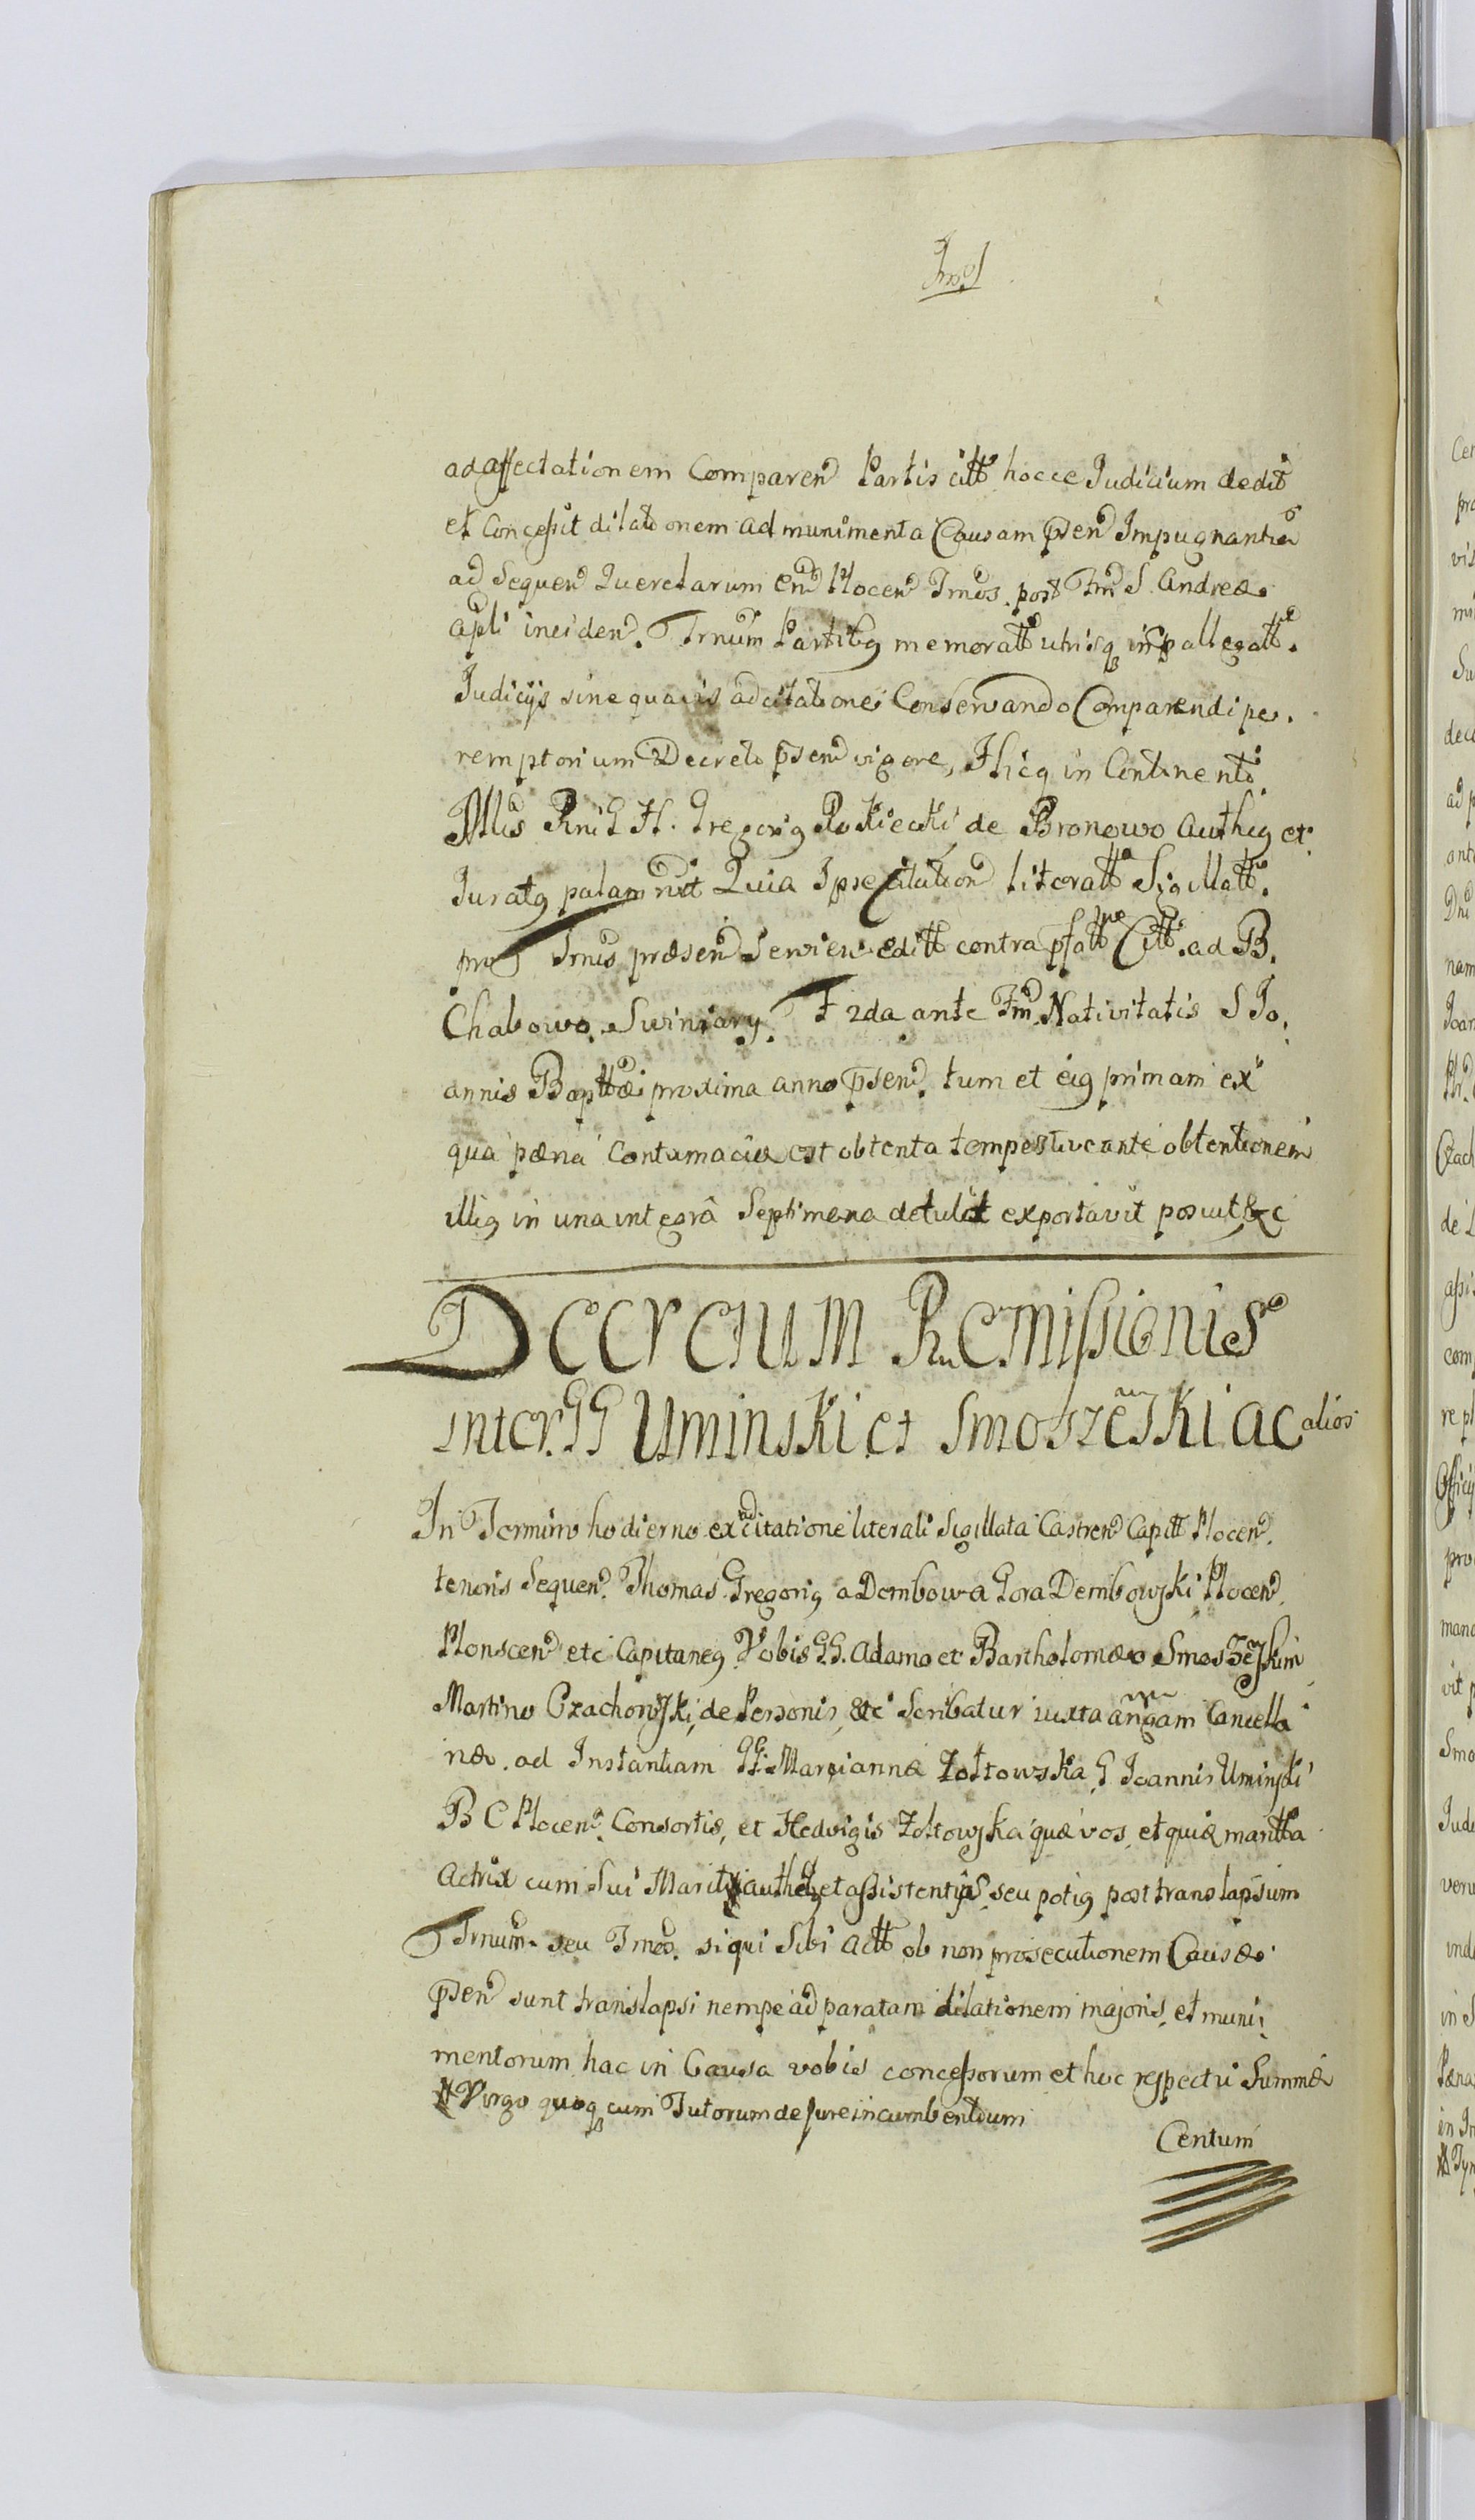 ad affectationem Comparen Partis citt hocce Judicium dedit
et Concessit dilationem ad munimenta Causam psen Impugnantia
ad Sequen Querelarum Plocen Tmos post Fm S Andreæ
apli inciden. Trnum Partibg memoratt utrisq in allegatt.
Judicijs sine quavis adcitatione Conservando Comparendi pe.
remptorium Decreto psen vigore, Hicq in Continenti
H. Gregorig Rokicki de Bronowo Authg et
Juratg palam Quia Ipse Citation literatt Sigillatt.
pro Trnis præsen Servien editt contra pfatt Citt. ad B.
Chabowo Swiniary. F 2da ante Fm Nativitatis S Jo.
annis Bapttæ proxima anno psen. tum et eig primam ex
qua pæna Contumaciæ est obtenta tempestive ante obtentionem
illig in una integrâ Septimana detulit exportavit posuit &c
Decretum Remissionis
inter GG Uminski et Smoszeski ac alios
In Termino hodierno ex adcitatione literali Sigillata Castren Capitt Plocen.
tenoris Sequen. Thomas Gregorig a Dembowa Gora Dembowski Plocen.
Plonscen etc Capitaneg Vobis GG. Adamo et Bartholomæo Smoszeskim
Martino Czachowski, de Personis, etc Scribatur iuxta Cancella
riæ. ad Instantiam GG. Mariannæ Zołtowska G Joannis Uminski
B C Plocen. Consortis, et Hedvigis Zołtowska quæ vos, et quia maritta
Actrix cum Sui Mariti authte et assistentia seu potig post translapsum
Trnum. seu Tmos. siqui Sibi Actt ob non prosecutionem Causæ
psen sunt translapsi nempe ad paratam dilationem majoris, et muni
mentorum hac in Causa vobis concessorum et hoc respectu Summæ
# Virgo quoq cum Tutorum de Jure incumbentium
Centum